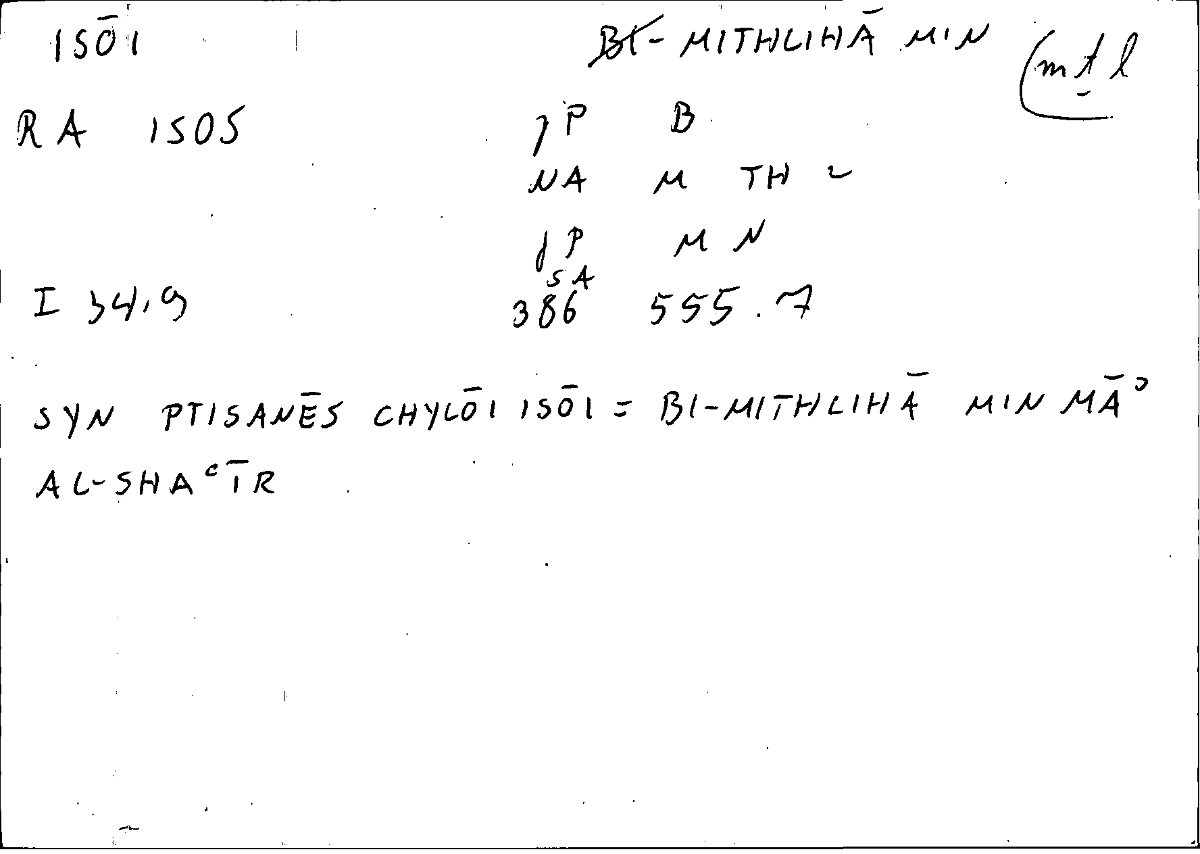 ISŌI BI-MITHLIHĀ MIN (mṯl
RA ISOS JP B
NA M TH L
JP M N
SA
I 34,9 386 555.7
SYN PTISANĒS CHYLŌI ISŌI = BI-MITHLIHĀ MIN MĀʾ
AL-SHAʿĪR